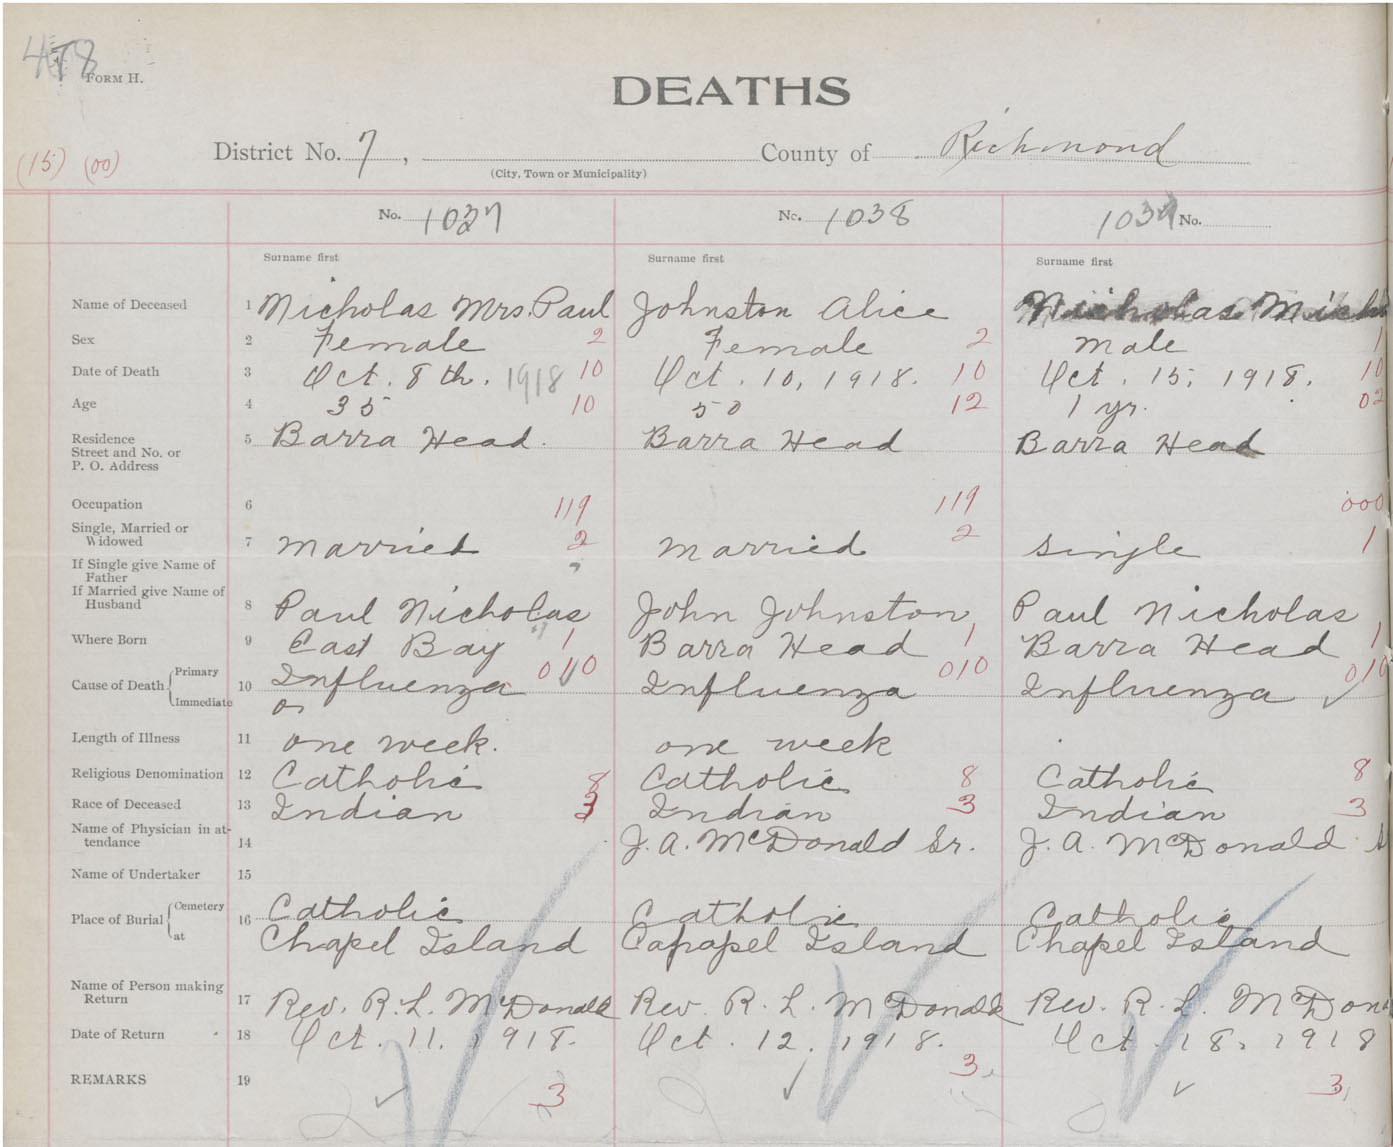 478
FORM H.
DEATHS
(15) (00)
District No. 7, County of Richmond
(City, Town or Municipality)
No. 1037 No. 1038 1039 No.
Surname first Surname first Surname first
Name of Deceased 1 Nicholas Mrs. Paul Johnston Alice Nicholas
Sex 2 Female 2 Female 2 Male 1
Date of Death 3 Oct. 8th. 1918 10 Oct. 10, 1918. 10 Oct. 15, 1918. 10
Age 4 35 10 50 12 1 yr. 02
Residence
Street and No. or
P. O. Address
5 Barra Head. Barra Head Barra Head
Occupation 6 119 119 000
Single, Married or
Widowed 7 Married 2 Married 2 Single 1
If Single give Name of
Father
If Married give Name of
Husband 8 Paul Nicholas John Johnston Paul Nicholas
Where Born 9 East Bay 1 Barra Head 1 Barra Head 1
Cause of Death { Primary
Immediate 10 Influenza 010 Influenza 010 Influenza 010
Length of Illness 11 one week. one week
Religious Denomination 12 Catholic 8 Catholic 8 Catholic 8
Race of Deceased 13 Indian 3 Indian 3 Indian 3
Name of Physician in at-
tendance 14 J. A. McDonald Sr. J. A. McDonald
Name of Undertaker 15
Place of Burial { Cemetery
at 16 Catholic Catholic Catholic
Chapel Island Capapel Island Chapel Island
Name of Person making
Return 17 Rev. R. L. McDonald Rev. R. L. McDonald Rev. R. L. McDona
Date of Return 18 Oct. 11, 1918. Oct. 12, 1918. Oct. 18, 1918
REMARKS 19 3 3 3